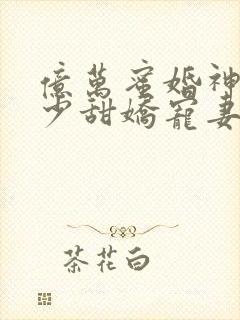 億萬蜜婚神
少甜嬌寵妻
茶花白